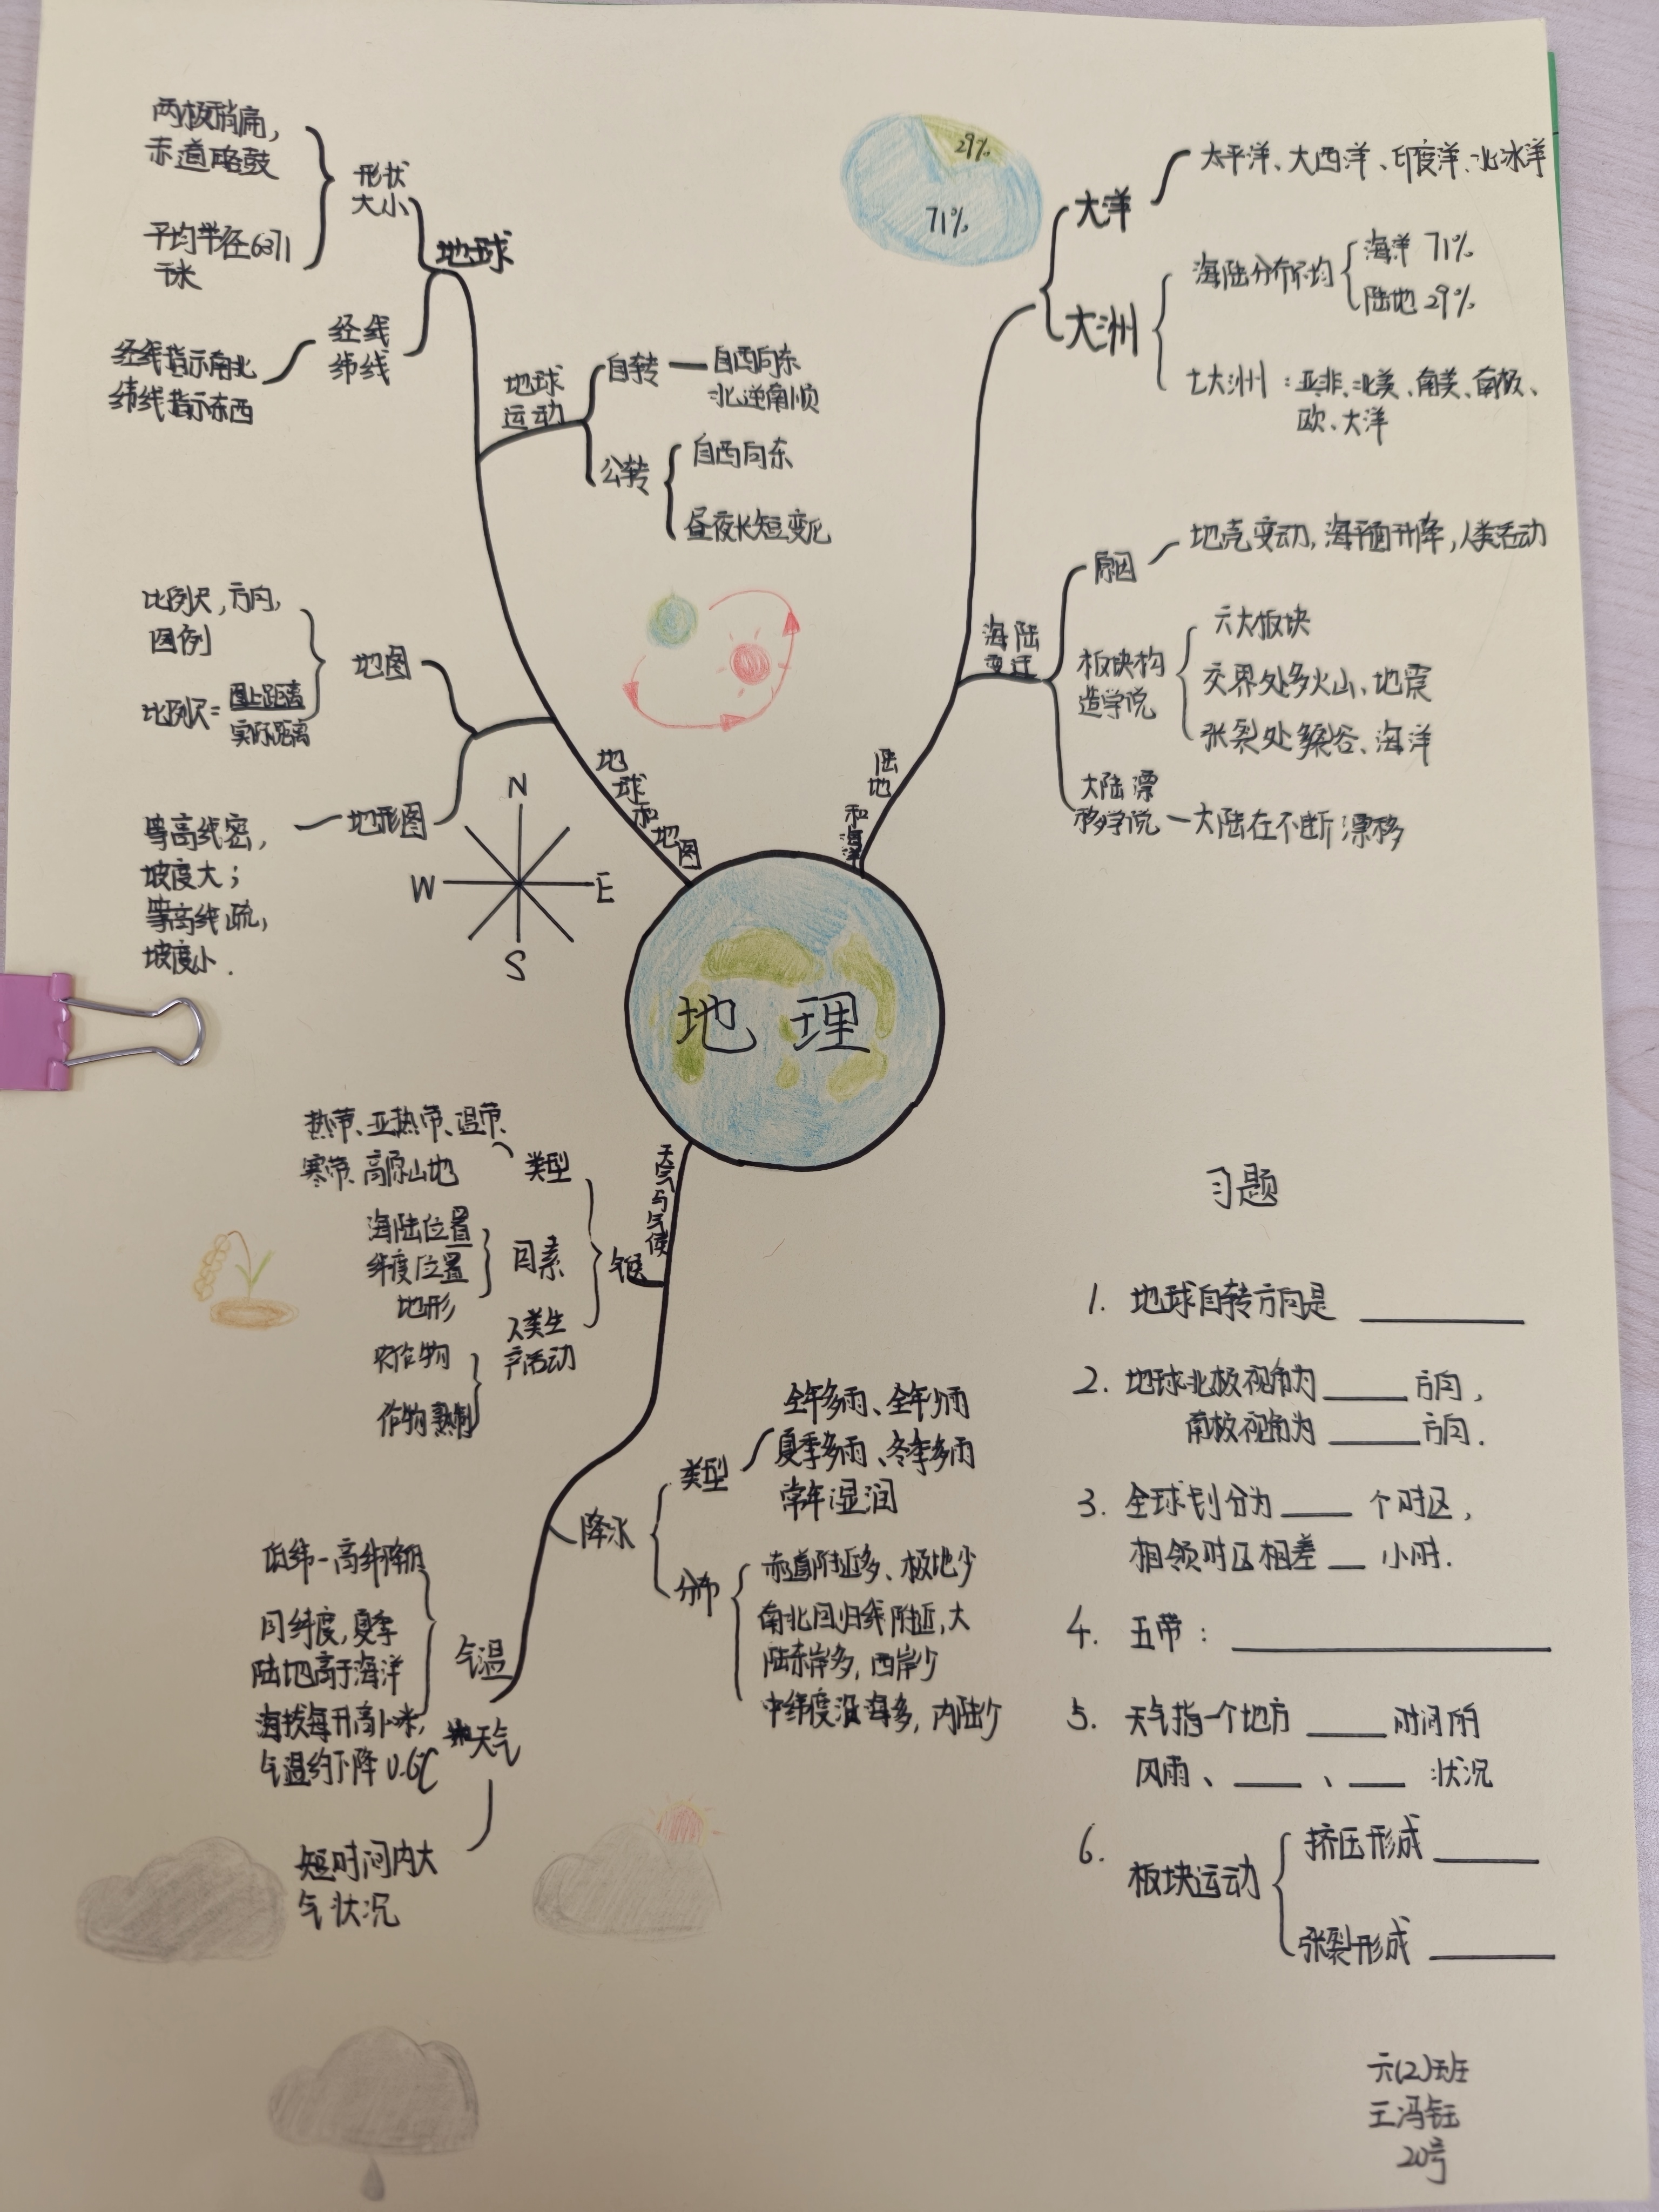 两极稍扁，
赤道略鼓
平均半径6371
千米
形状
大小
地球
经线
纬线
经线指示南北
纬线指示东西
地球
运动
自转
自西向东
北逆南顺
公转
自西向东
昼夜长短变化
比例尺，方向，
图例
比例尺=图上距离
实际距离
地图
地形图
等高线密，
坡度大；
等高线疏，
坡度小.
N
W
E
S
地球和地图
29%
71%
大洋
太平洋、大西洋、印度洋、北冰洋
大洲
海陆分布不均
海洋 71%
陆地 29%
七大洲：亚、非、北美、南美、南极、
欧、大洋
海陆
变迁
原因
地壳变动，海平面升降，人类活动
板块构
造学说
六大板块
交界处多火山、地震
张裂处多裂谷、海洋
大陆漂
移学说
大陆在不断漂移
陆地和海洋
地理
天气与气候
气候
类型
热带、亚热带、温带、
寒带、高原山地
因素
海陆位置
纬度位置
地形
人类生
产活动
农作物
作物熟制
降水
类型
全年多雨、全年少雨
夏季多雨、冬季多雨
常年湿润
分布
赤道附近多、极地少
南北回归线附近，大
陆东岸多，西岸少
中纬度沿海多，内陆少
气温
低纬-高纬降低
同纬度，夏季
陆地高于海洋
气温约下降0.6℃
天气
短时间内大
气状况
习题
1. 地球自转方向是
2. 地球北极视角为 方向，
南极视角为 方向.
3. 全球划分为 个时区，
相领时区相差 小时.
4. 五带：
5. 天气指一个地方 时间的
风雨、 、 状况
6. 板块运动
挤压形成
张裂形成
六(2)班
王冯钰
20号